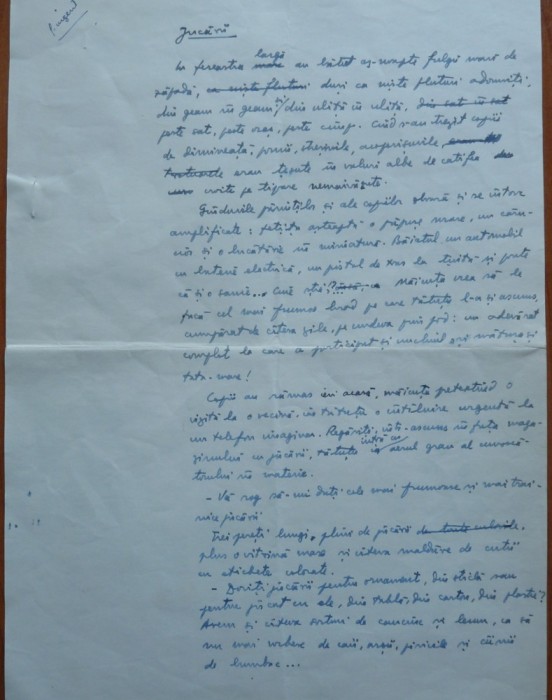 Jucării
La fereastra largă au bătut aș-noapte fulgi mari de
zăpadă, ca niște fluturi duși ca niște fluturi adormiți
din geam în geam și din uliță în uliță, din sat în sat
peste sat, peste oraș, peste câmp. Când s-au trezit copiii
de dimineață pomii, acoperișurile,
erau țesute în valuri albe de catifea
croite pe tipare nemaivăzute.
Gândurile părinților și ale copiilor zboară și se întorc
amplificate: fetița așteaptă o păpușă mare, un
și o bucătărie în miniatură. Băiatul un automobil
cu baterie electrică, un pistol de tras la țintă și poate
că și o sanie... Cine știe? Măicuța vrea să le
facă cel mai frumos brad pe care tătuțu l-a și ascuns,
cumpărat de câteva zile, pe undeva prin pod: un adevărat
complot la care a participat și unchiul și
tata-mare!
Copiii au rămas în casă, măicuța pretextând o
vizită la o vecină, iar tătuțu o întâlnire urgentă la
un telefon imaginar. Regăsiți într-ascuns în fața maga-
zinului cu jucării, tătuțu intră cu aerul grav al cunosc-
ătorului în materie.
- Vă rog să-mi dați cele mai frumoase și mai trai-
nice jucării
Trei pereți lungi, plini de jucării de toate culorile,
plus o vitrină mare și câteva maldăre de cutii
cu etichete colorate.
- Doriți jucării pentru ornament, din sticlă sau
pentru jucat cu ele, din tablă, din carton, din plastic?
Avem și câteva sorturi de cauciuc și lemn, ca să
nu mai vorbesc de caii, urșii, pisicile și câinii
de bumbac...